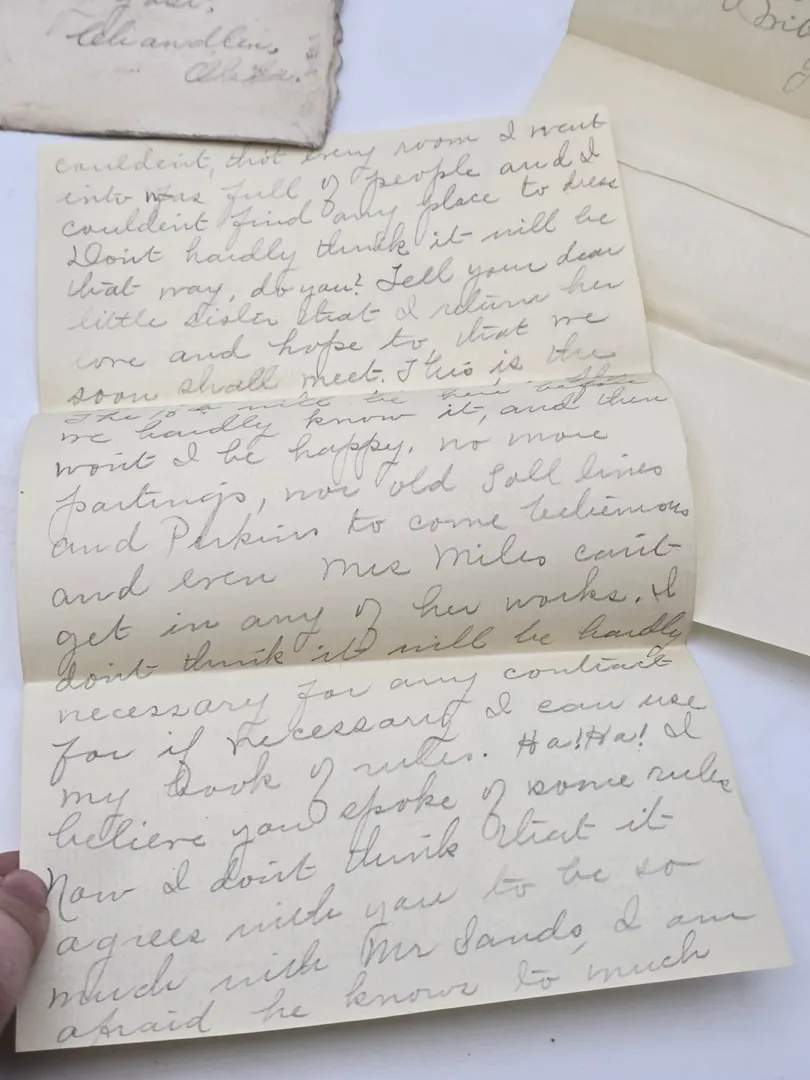 Chandler,
Okla.
couldent, that every room I went
into was full of people and I
couldent find any place to dress
Dont hardly think it will be
that way, do you? Tell your dear
little sister that I return her
love and hope to, that we
soon shall meet. This is the
we hardly know it, and then
wont I be happy. no more
partings, nor old Toll lines
and Perkins to come between us
and even Mrs Miles can't
get in any of her works. I
dont think it will be hardly
necessary for any contract
for if necessary I can use
my book of rules. Ha! Ha! I
believe you spoke of some rules
Now I don't think that it
agrees with you to be so
much with Mr Sands, I am
afraid he knows to much